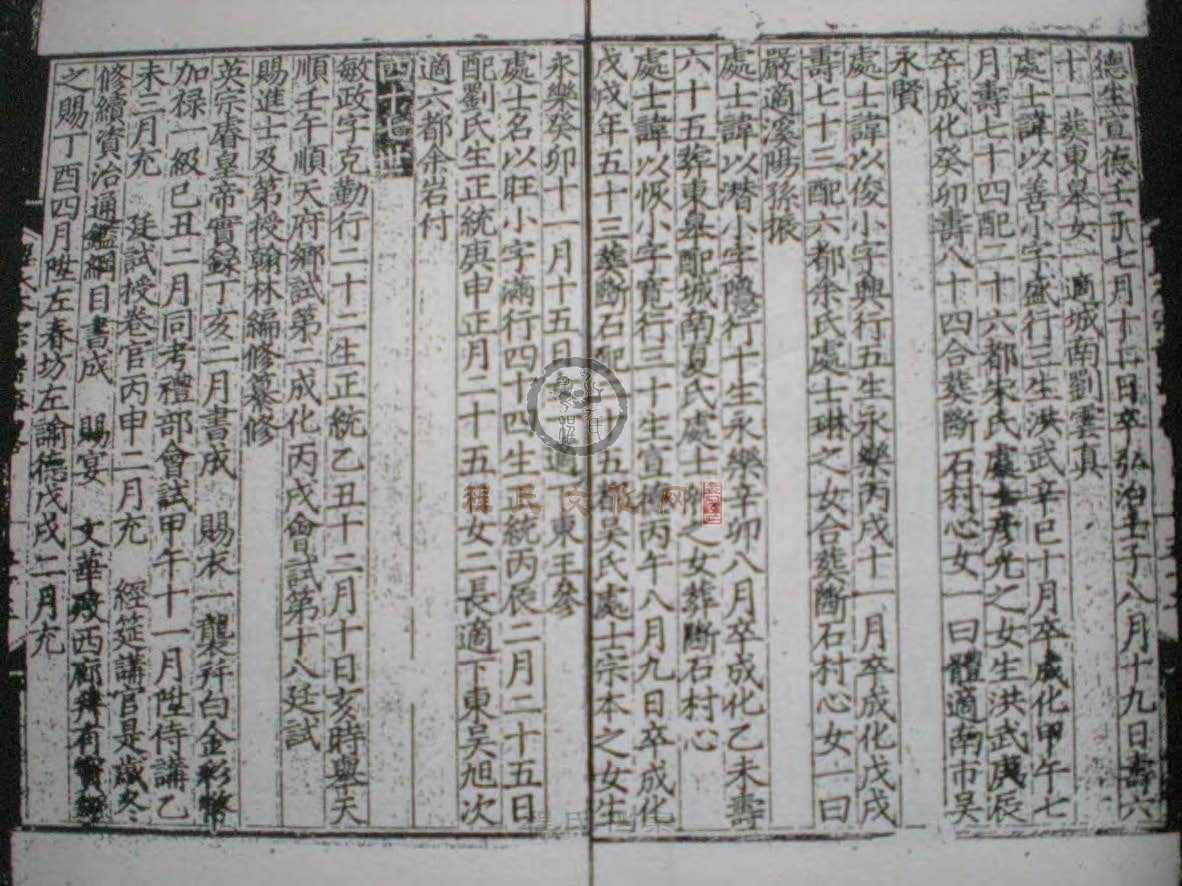 德生宣德壬子七月十日卒弘治壬子八月十九日壽六
十一葬東皋女一適城南劉雲真
處士諱以善小字盛行三生洪武辛巳十月卒成化甲午七
月壽七十四配二十六都朱氏處士彥光之女生洪武庚辰
卒成化癸卯壽八十四合葬斷石村心女一曰體適南市吳
永賢
處士諱以俊小字興行五生永樂丙戌十一月卒成化戊戌
壽七十三配六都余氏處士琳之女合葬斷石村心女一曰
嚴適溪陽孫振
處士諱以潛小字隱行十生永樂辛卯八月卒成化乙未壽
六十五葬東皋配城南夏氏處士之女葬斷石村心
處士諱以恢小字寬行三十生宣德丙午八月九日卒成化
戊戌年五十三葬斷石配二十五都吳氏處士宗本之女生
永樂癸卯十一月十五日女一適下東王參
處士名以旺小字滿行四十四生正統丙辰二月二十五日
配劉氏生正統庚申正月二十五女二長適下東吳旭次
適六都余岩付
四十世
敏政字克勤行二十二生正統乙丑十二月十日亥時舉天
順壬午順天府鄉試第二成化丙戌會試第十八廷試
賜進士及第授翰林編修纂修
英宗睿皇帝實錄丁亥二月書成 賜衣一襲并白金彩幣
加祿一級己丑二月同考禮部會試甲午十一月陞侍講乙
未三月充 廷試授卷官丙申二月充 經筵講官是歲冬
修續資治通鑑綱目書成 賜宴 文華殿西廊并有寶
之賜丁酉四月陞左春坊左諭德戊戌二月充
程氏文化网